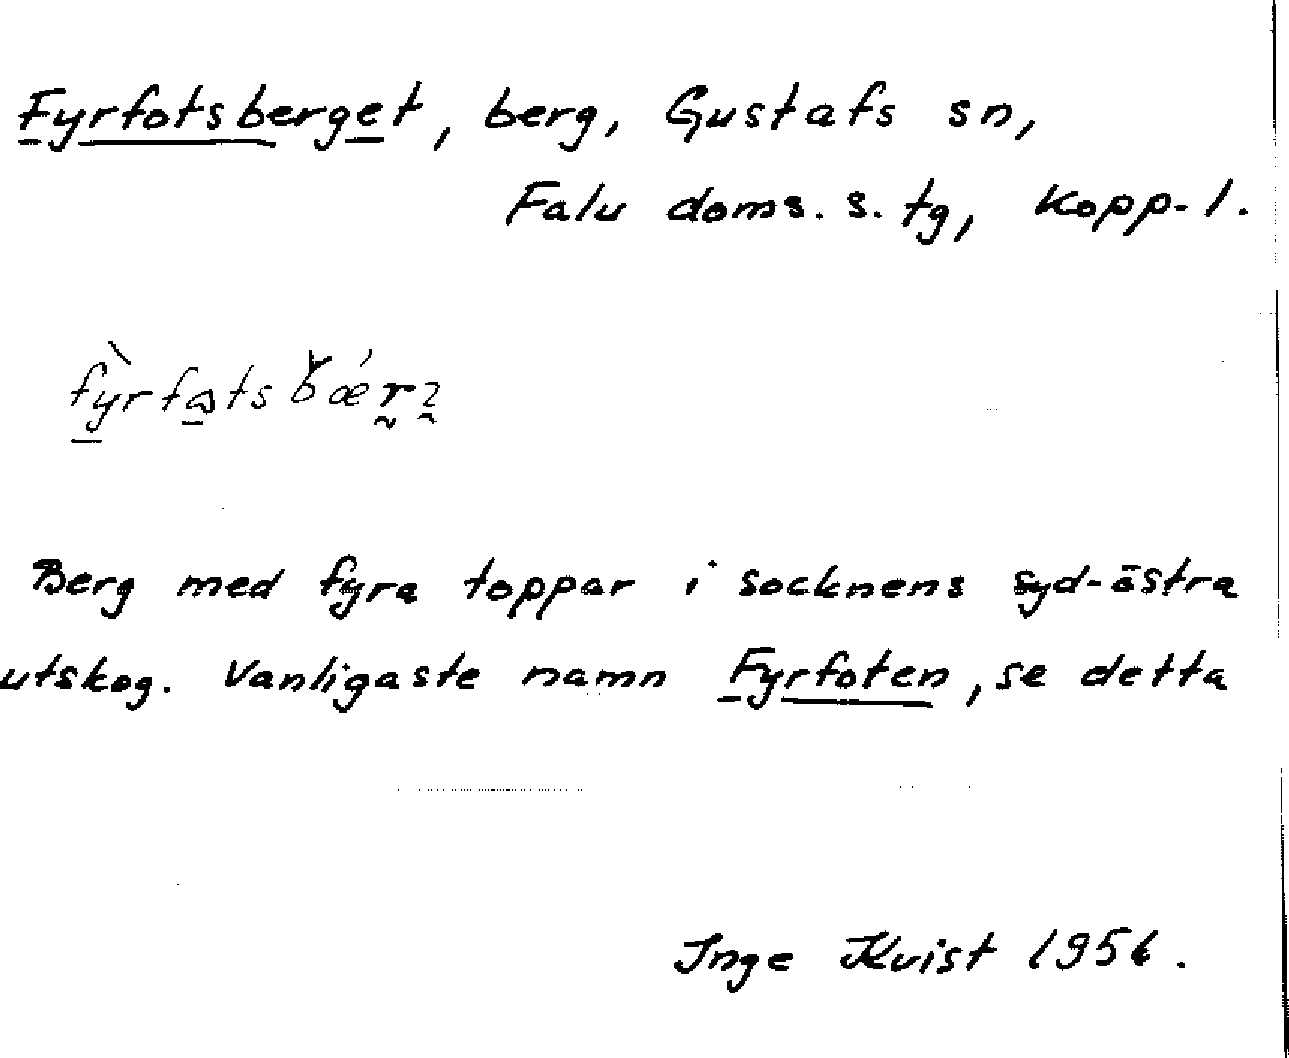 Fyrfotsberget, berg, Gustafs sn,
Falu doms. s. tg, Kopp-l.
Berg med fyra toppar i socknens syd-östra
utskog. Vanligaste namn Fyrfoten, se detta
Inge Kvist 1956.